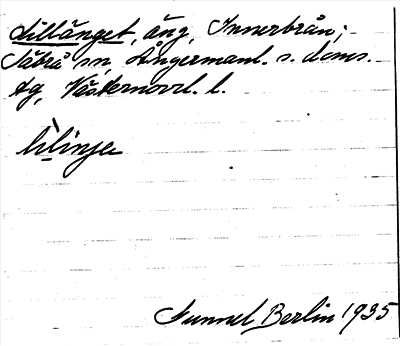 Lillänget, äng, Innerbrån;
Säbrå sn, Ångermanl. s. doms.
tg, Västernorrl. l.
lìlinjæ
Gunnel Berlin 1935